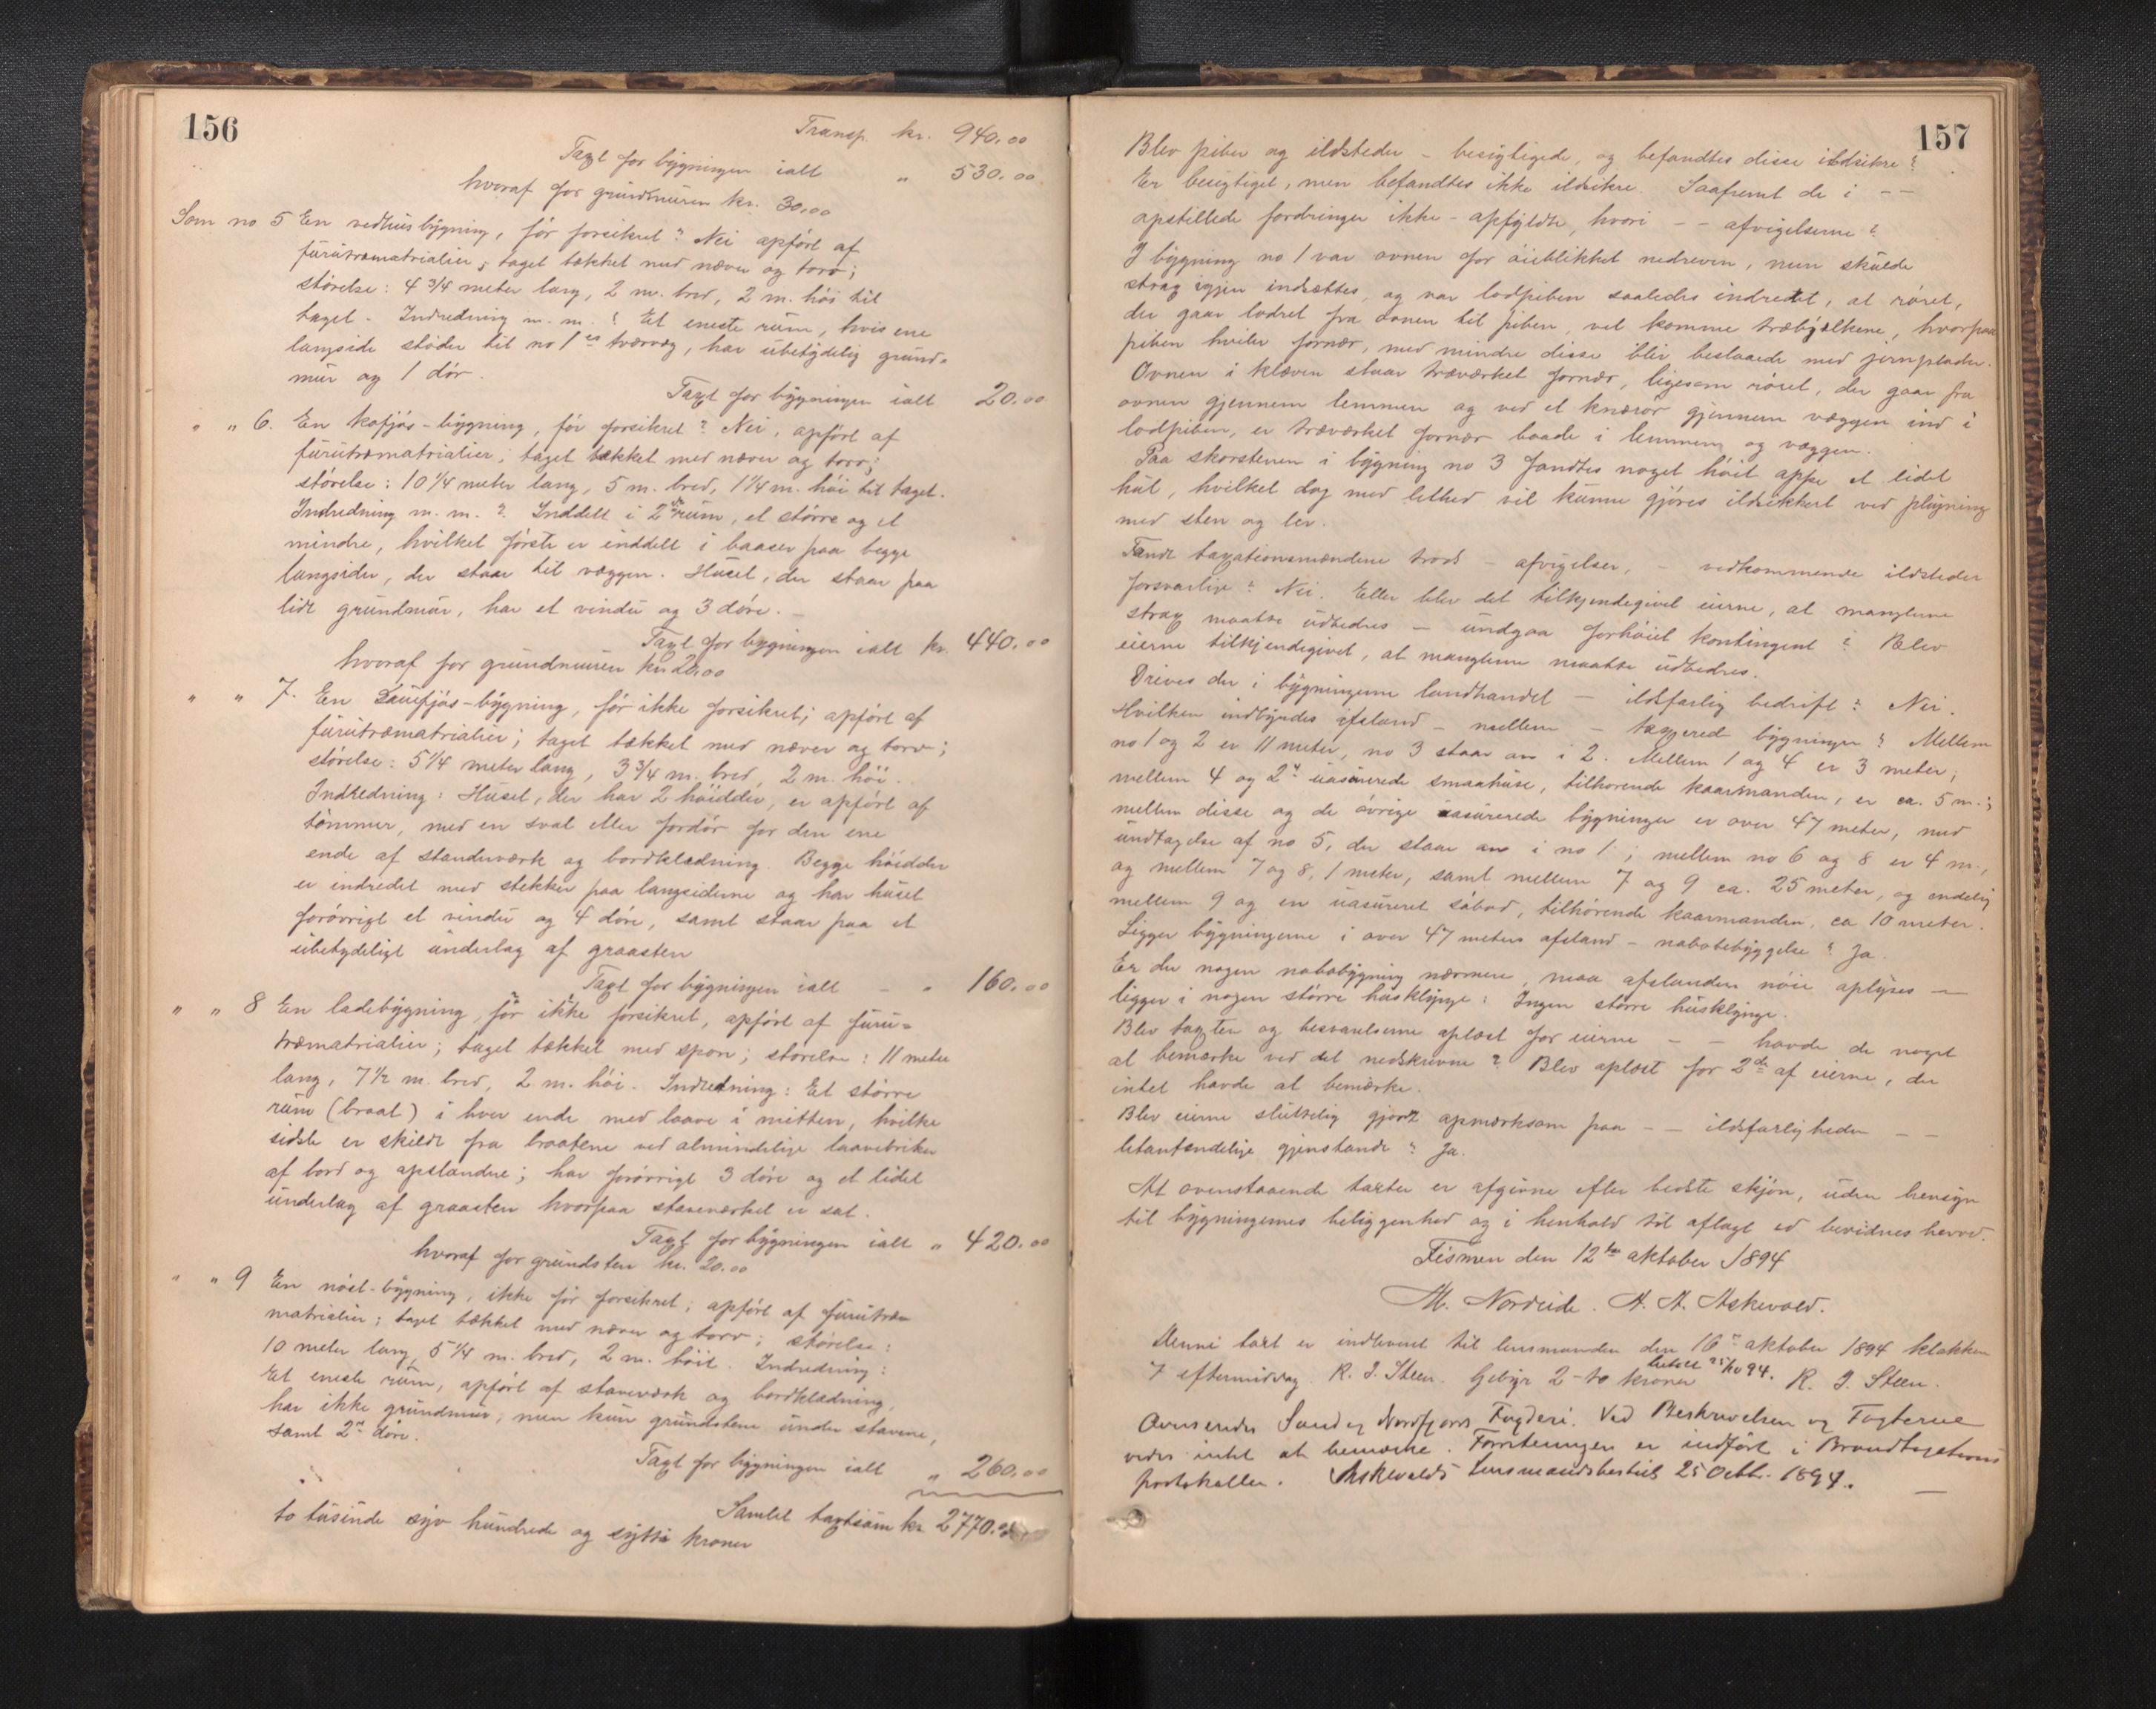 156
Transp. kr. 940.00
Taxt for bygningen ialt " 530.00
hvoraf for grundmuren kr. 30.00
Som no 5 En vedhusbygning, før forsikret? Nei opført af
furutræmatrialier, taget tækket med næver og torv;
størelse: 4 3/4 meter lang, 2 m. bred, 2 m. høi til
taget. Indredning m. m.? Et eneste rum, hvis ene
langside støder til no 1es tværvæg, har ubetydelig grund=
mur og 1 dør.
Taxt for bygningen ialt 20.00
" " 6. En kofjøs-bygning, før forsikret? Nei, opført af
furutræmatrialier; taget tækket med næver og torv;
størelse: 10 1/4 meter lang, 5 m. bred, 1 1/4 m. høi til taget.
Indredning m. m.? Inddelt i 2de rum, et større og et
mindre, hvilket første er inddelt i baaser paa begge
langsider, der staar til væggen. Huset, der staar paa
lidt grundmur, har et vindu og 3 døre. –
Taxt for bygningen ialt kr. 440.00
hvoraf for grundmuren kr. 20.00
" " 7. En Sauefjøs-bygning, før ikke forsikret; opført af
furutræmatrialier; taget tækket med næver og torv;
størelse: 5 1/4 meter lang, 3 3/4 m. bred, 2 m. høi.
Indredning: Huset, der har 2 høidder, er opført af
tømmer, med en sval eller fordør for den ene
ende af standerværk og bordklædning. Begge høidder
er indredet med stekker paa langsiderne og har huset
forøvrigt et vindu og 4 døre, samt staar paa et
ubetydeligt underlag af graasten
Taxt for bygningen ialt – " 160.00
" " 8 En ladebygning, før ikke forsikret, opført af furu=
træmatrialier; taget tækket med spon; størelse: 11 meter
lang, 7 1/2 m. bred, 2 m. høi. Indredning: Et større
rum (braat) i hver ende med laave i mitten, hvilke
sidste er skildt fra braatene ved almindelige laavebriker
af bord og opstandere; har forøvrigt 3 døre og et lidet
underlag af graasten hvorpaa staveværket er sat.
Taxt for bygningen ialt " 420.00
hvoraf for grundsten kr. 20.00
" " 9 En nøst-bygning, ikke før forsikret; opført af furutræ
matrialier; taget tækket med næver og torv; størelse:
10 meter lang, 5 1/4 m. bred, 2 m. høit. Indredning:
Et eneste rum, opført af staveværk og bordklædning,
har ikke grundmur, men kun grundstene under stavene,
samt 2de døre.
Taxt for bygningen ialt " 260.00
Samlet taxtsum kr. 2770.00
to tusinde syv hundrede og sytti kroner
157
Blev piber og ildsteder – besigtigede, og befandtes disse ildsikre?
Er besigtiget, men befandtes ikke ildsikre. Saafremt de i – –
opstillede fordringer ikke – opfyldte, hvori – – afvigelserne?
I bygning no 1 var ovnen for øieblikket nedreven, men skulde
strax igjen indsættes, og var lodpiben saaledes indredet, at røret,
der gaar lodret fra ovnen til piben, vil komme træbjælkerne, hvorpaa
piben hviler fornær, med mindre disse blir beslaaede med jernplader.
Ovnen i kleven staar træværket fornær, ligesom røret, der gaar fra
ovnen gjennem lemmen og ved et knærør gjennem væggen ind i
lodpiben, er træværket fornær baade i lemmen og væggen.
Paa skorstenen i bygning no 3 fandtes noget høit oppe et lidet
hul, hvilket dog med lethed vil kunne gjøres ildsikkert ved plugning
med sten og ler.
Fandt taxationsmændene trods – afvigelser, – vedkommende ildsteder
forsvarlige? Nei. Eller blev det tilkjendegivet eierne, at manglerne
strax maatte udbedres – undgaa forhøiet kontingent? Blev
eierne tilkjendegivet, at manglerne maatte udbedres.
Drives der i bygningerne landhandel – ildsfarlig bedrift? Nei.
Hvilken indbyrdes afstand – mellem – taxerede bygninger? Mellem
no 1 og 2 er 11 meter, no 3 staar an i 2. Mellem 1 og 4 er 3 meter;
mellem 4 og 2de uasurerede smaahuse, tilhørende kaarmanden, er ca. 5 m.;
mellem disse og de øvrige asurerede bygninger er over 47 meter, med
undtagelse af no 5, der staar an i no 1; mellem no 6 og 8 er 4 m.,
og mellem 7 og 8, 1 meter, samt mellem 7 og 9 ca. 25 meter, og endelig
mellem 9 og en uasureret søbod, tilhørende kaarmanden, ca 10 meter.
Ligger bygningerne i over 47 meters afstand – nabobebyggelse? Ja.
Er der nogen nabobygning nærmere, maa afstanden nøie oplyses –
ligger i nogen større husklynge: Ingen større husklynge.
Blev taxten og besvarelserne oplæst for eierne – – havde de noget
at bemærke ved det nedskrevne? Blev oplæst for 2de af eierne, der
intet havde at bemærke.
Blev eierne sluttelig gjort opmærksom paa – – ildsfarligheden – –
letantændelige gjenstande? Ja.
At ovenstaaende taxter er afgivne efter bedste skjøn, uden hensyn
til bygningernes beliggenhed og i henhold til aflagt ed bevidnes herved.
Fismen den 12te oktober 1894
M. Nordeide. A. A. Askevold.
Denne taxt er indleveret til lensmanden den 16de oktober 1894 klokken
7 eftermiddag. R. J. Steen. Gebyr 2 – to kroner betalt 25/10 94. R. J. Steen.
Søndfjords Fogderi. Ved Beskrivelsen og Taxterne
vides intet at bemærke. Forretningen er indført i Brandtaxations
protokollen. Askevolds Lensmandsbestil 25 Octbr. 1894.